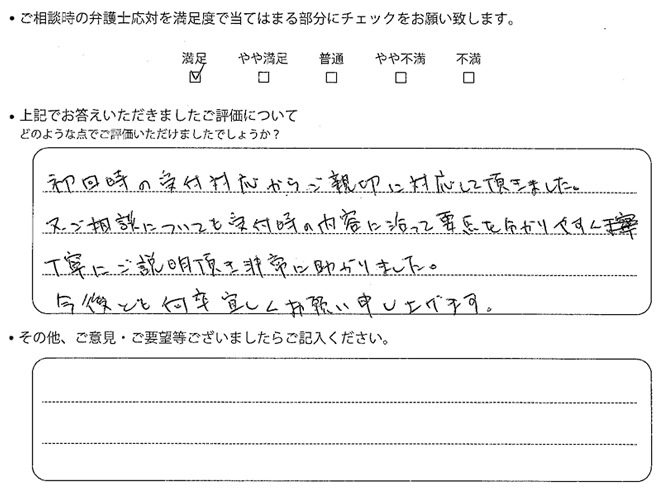 • ご相談時の弁護士応対を満足度で当てはまる部分にチェックをお願い致します。
満足 やや満足 普通 やや不満 不満
☑ □ □ □ □
• 上記でお答えいただきましたご評価について
どのような点でご評価いただけましたでしょうか？
初回時の受付対応からご親切に対応して頂きました。
又ご相談についても受付時の内容に沿って要点を分かりやすく
丁寧にご説明頂き非常に助かりました。
今後とも何卒宜しくお願い申し上げます。
• その他、ご意見・ご要望等ございましたらご記入ください。